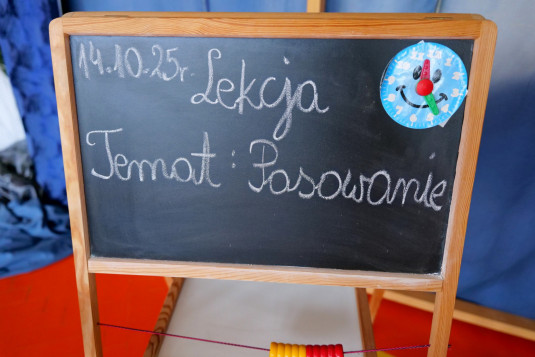 14.10.25r. Lekcja
Temat: Pasowanie